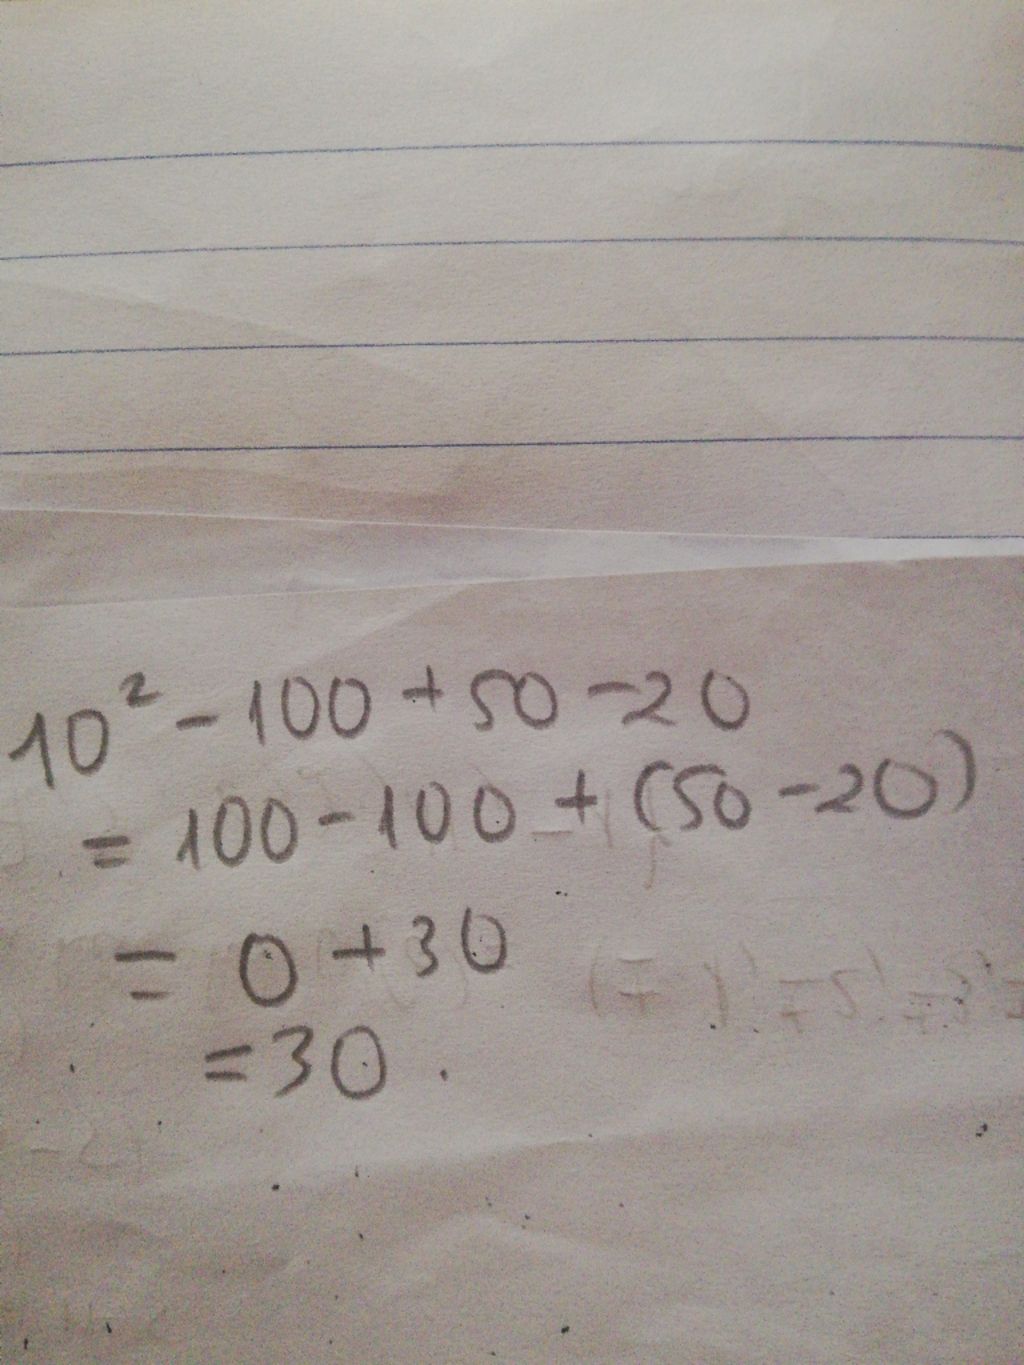 10² - 100 + 50 - 20
= 100 - 100 + (50 - 20)
= 0 + 30
= 30.